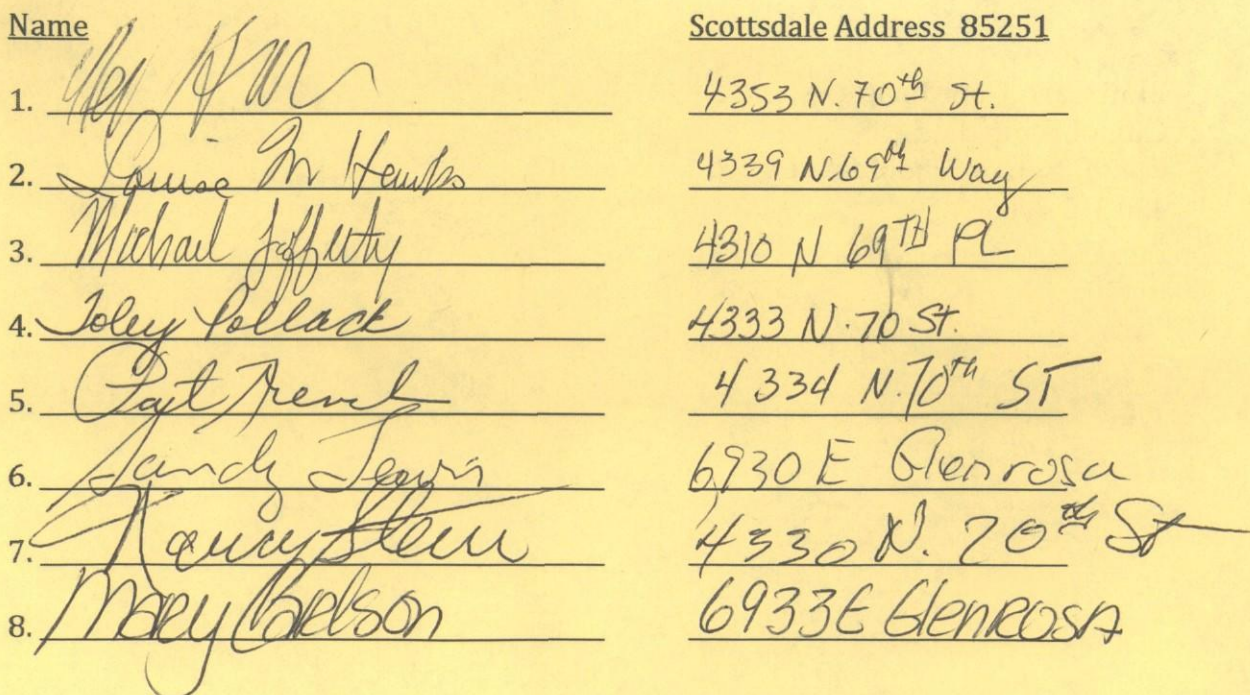 Name Scottsdale Address 85251
1. 4353 N. 70th St.
2. Louise M Hawks 4339 N. 69th Way
3. Michael Jafferty 4310 N 69TH PL
4. Toley Pollack 4333 N. 70 St.
5. Pat French 4334 N. 70th ST
6. Sandy 6930 E Glenrosa
7. Nancy Stern 4330 N. 70th St
8. Mary Carlson 6933 E GlenROSA